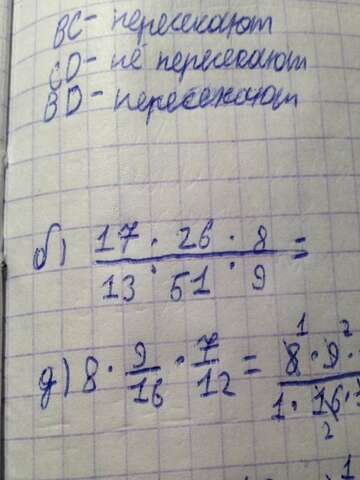 BC - пересекают
CD - не пересекают
BD - пересекают
б) 17 · 26 · 8 / 13 · 51 · 9 =
д) 8 · 9/16 · 7/12 = 8 · 9 · / 1 · 16 ·
1 2
2
1